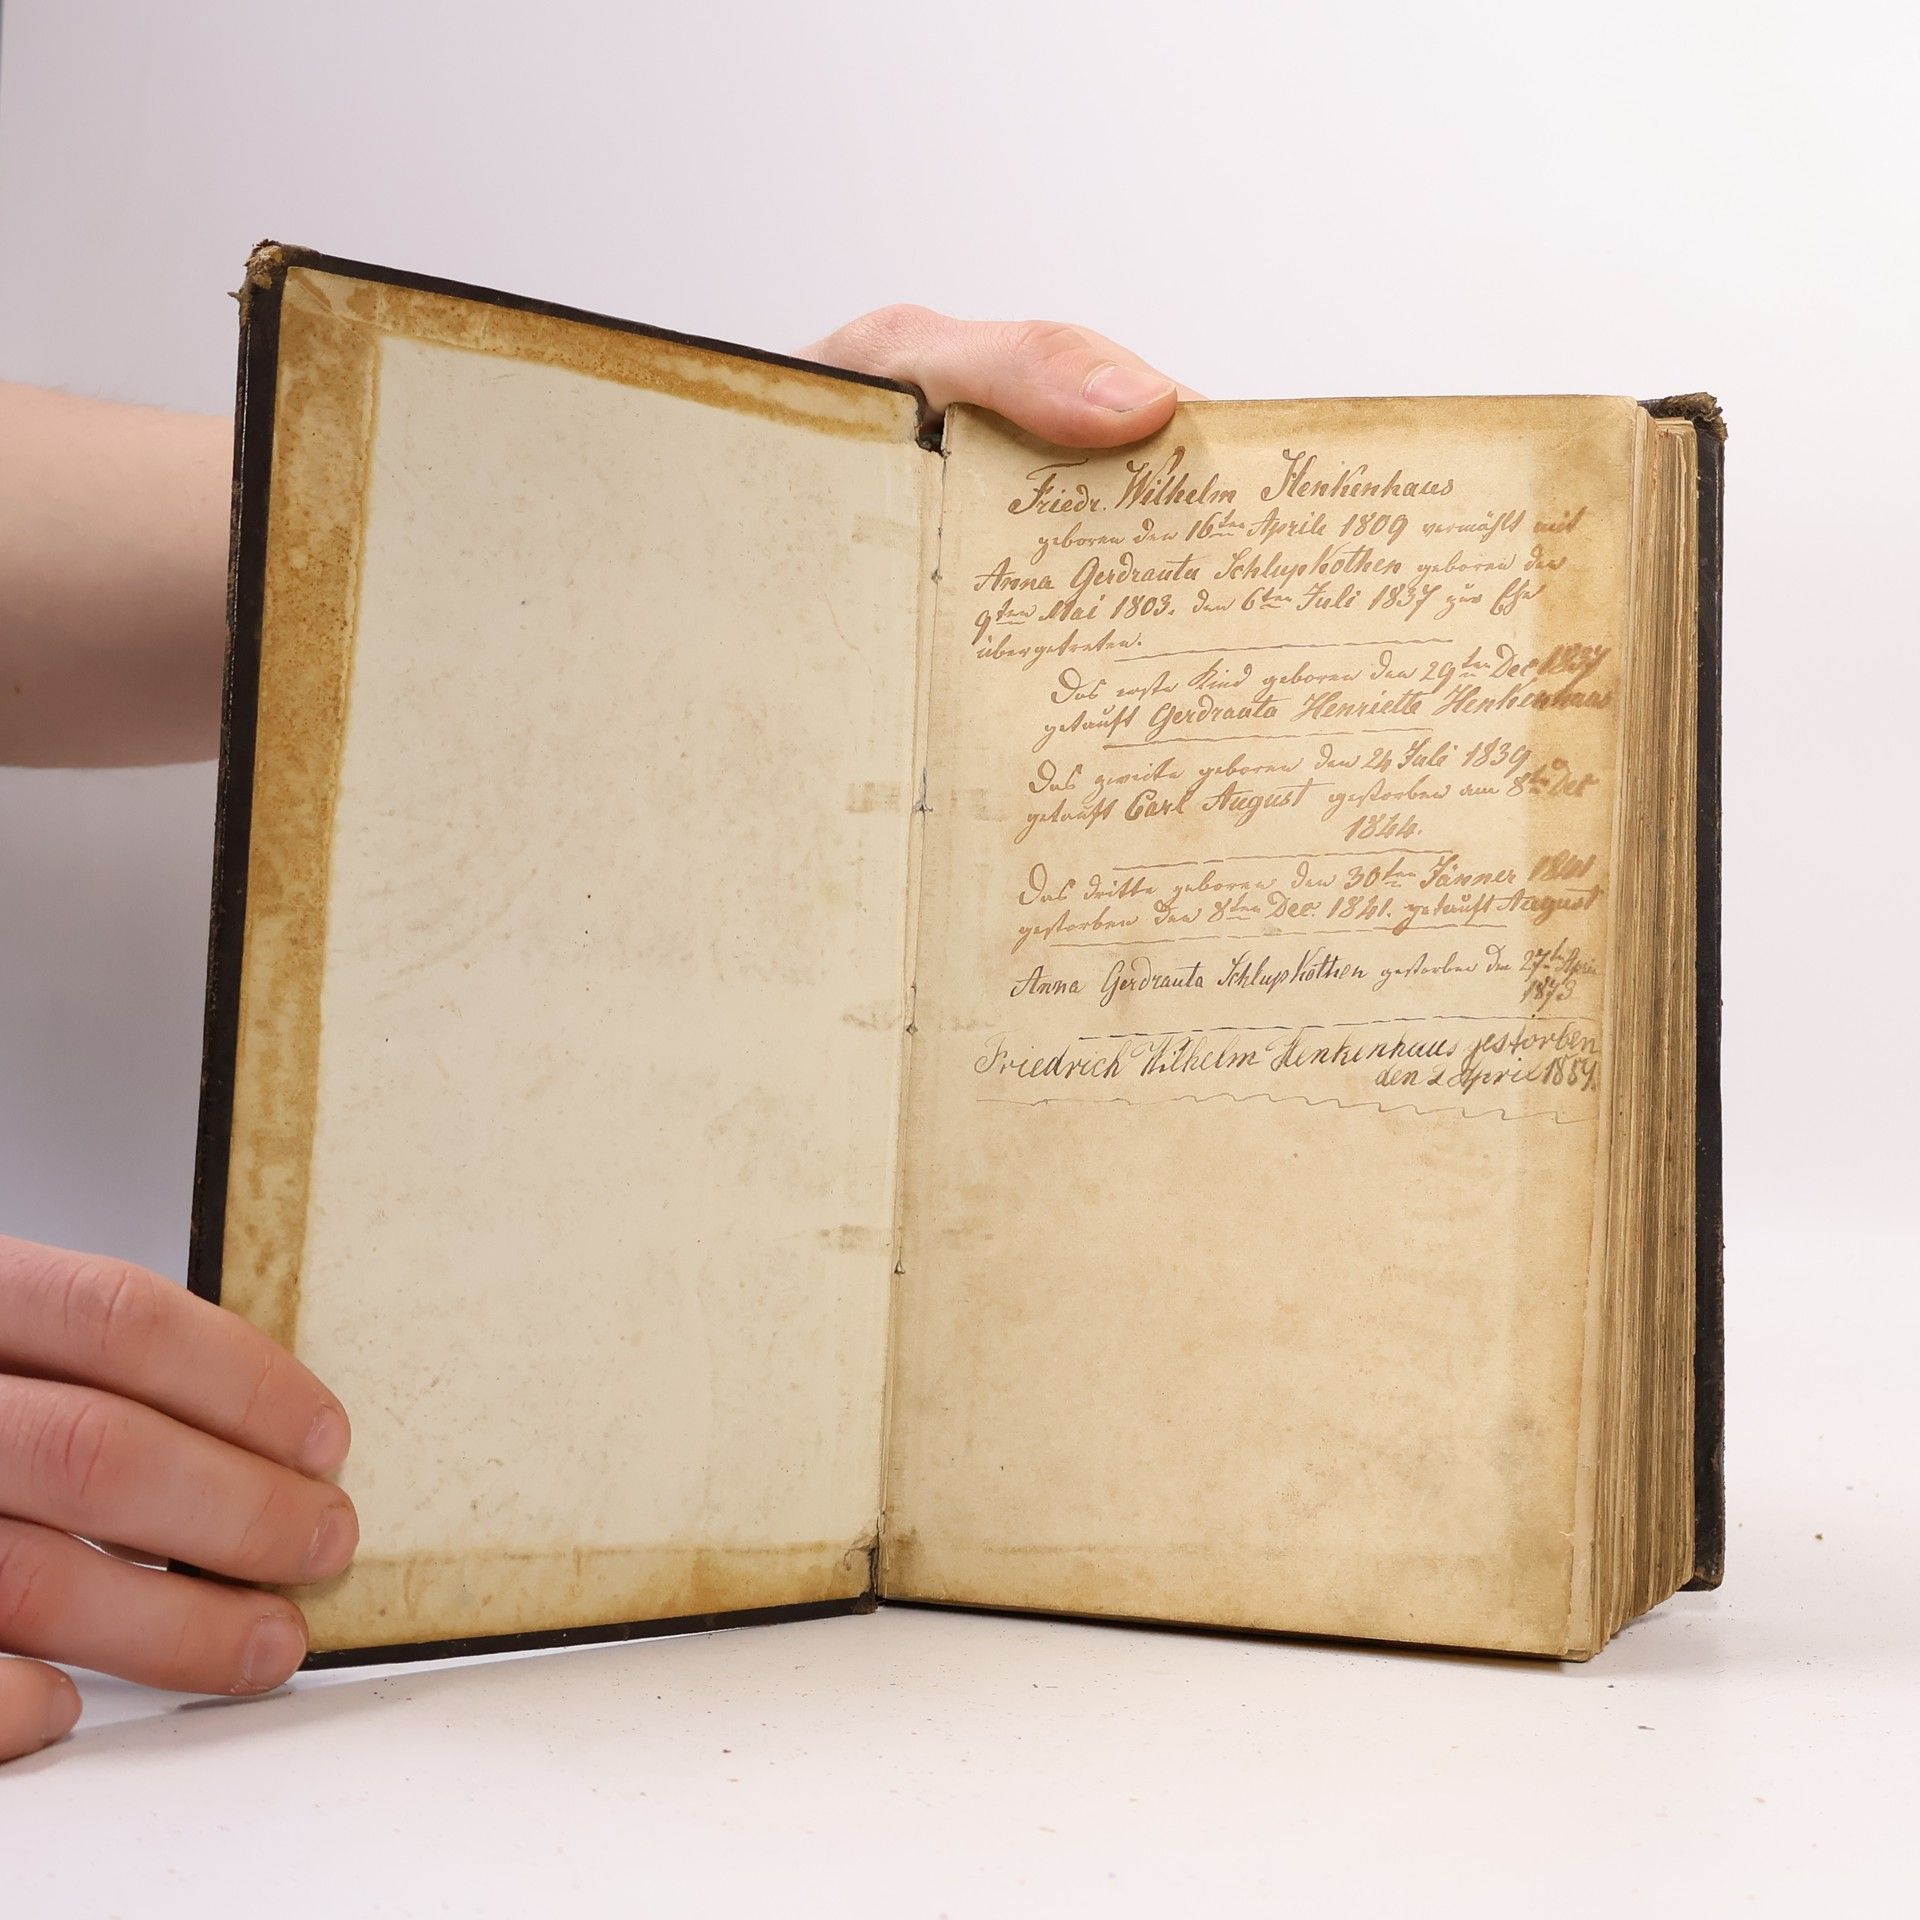 Friedr. Wilhelm Henkenhaus
geboren den 16ten Aprile 1809 vermählt mit
Anna Gerdrauta Schlupkothen geboren den
9ten Mai 1803. den 6ten Juli 1837 zur Ehe
übergetreten.
Das erste Kind geboren den 29ten Dec 1837
getauft Gerdrauta Henriette Henkenhaus
Das zweite geboren den 24 Juli 1839
getauft Carl August gestorben am 8ten Dec
1844.
Das dritte geboren den 30ten Jänner 1841
gestorben den 8ten Dec. 1841. getauft August
Anna Gerdrauta Schlupkothen gestorben den 27ten
1873
Friedrich Wilhelm Henkenhaus gestorben
den 2 April